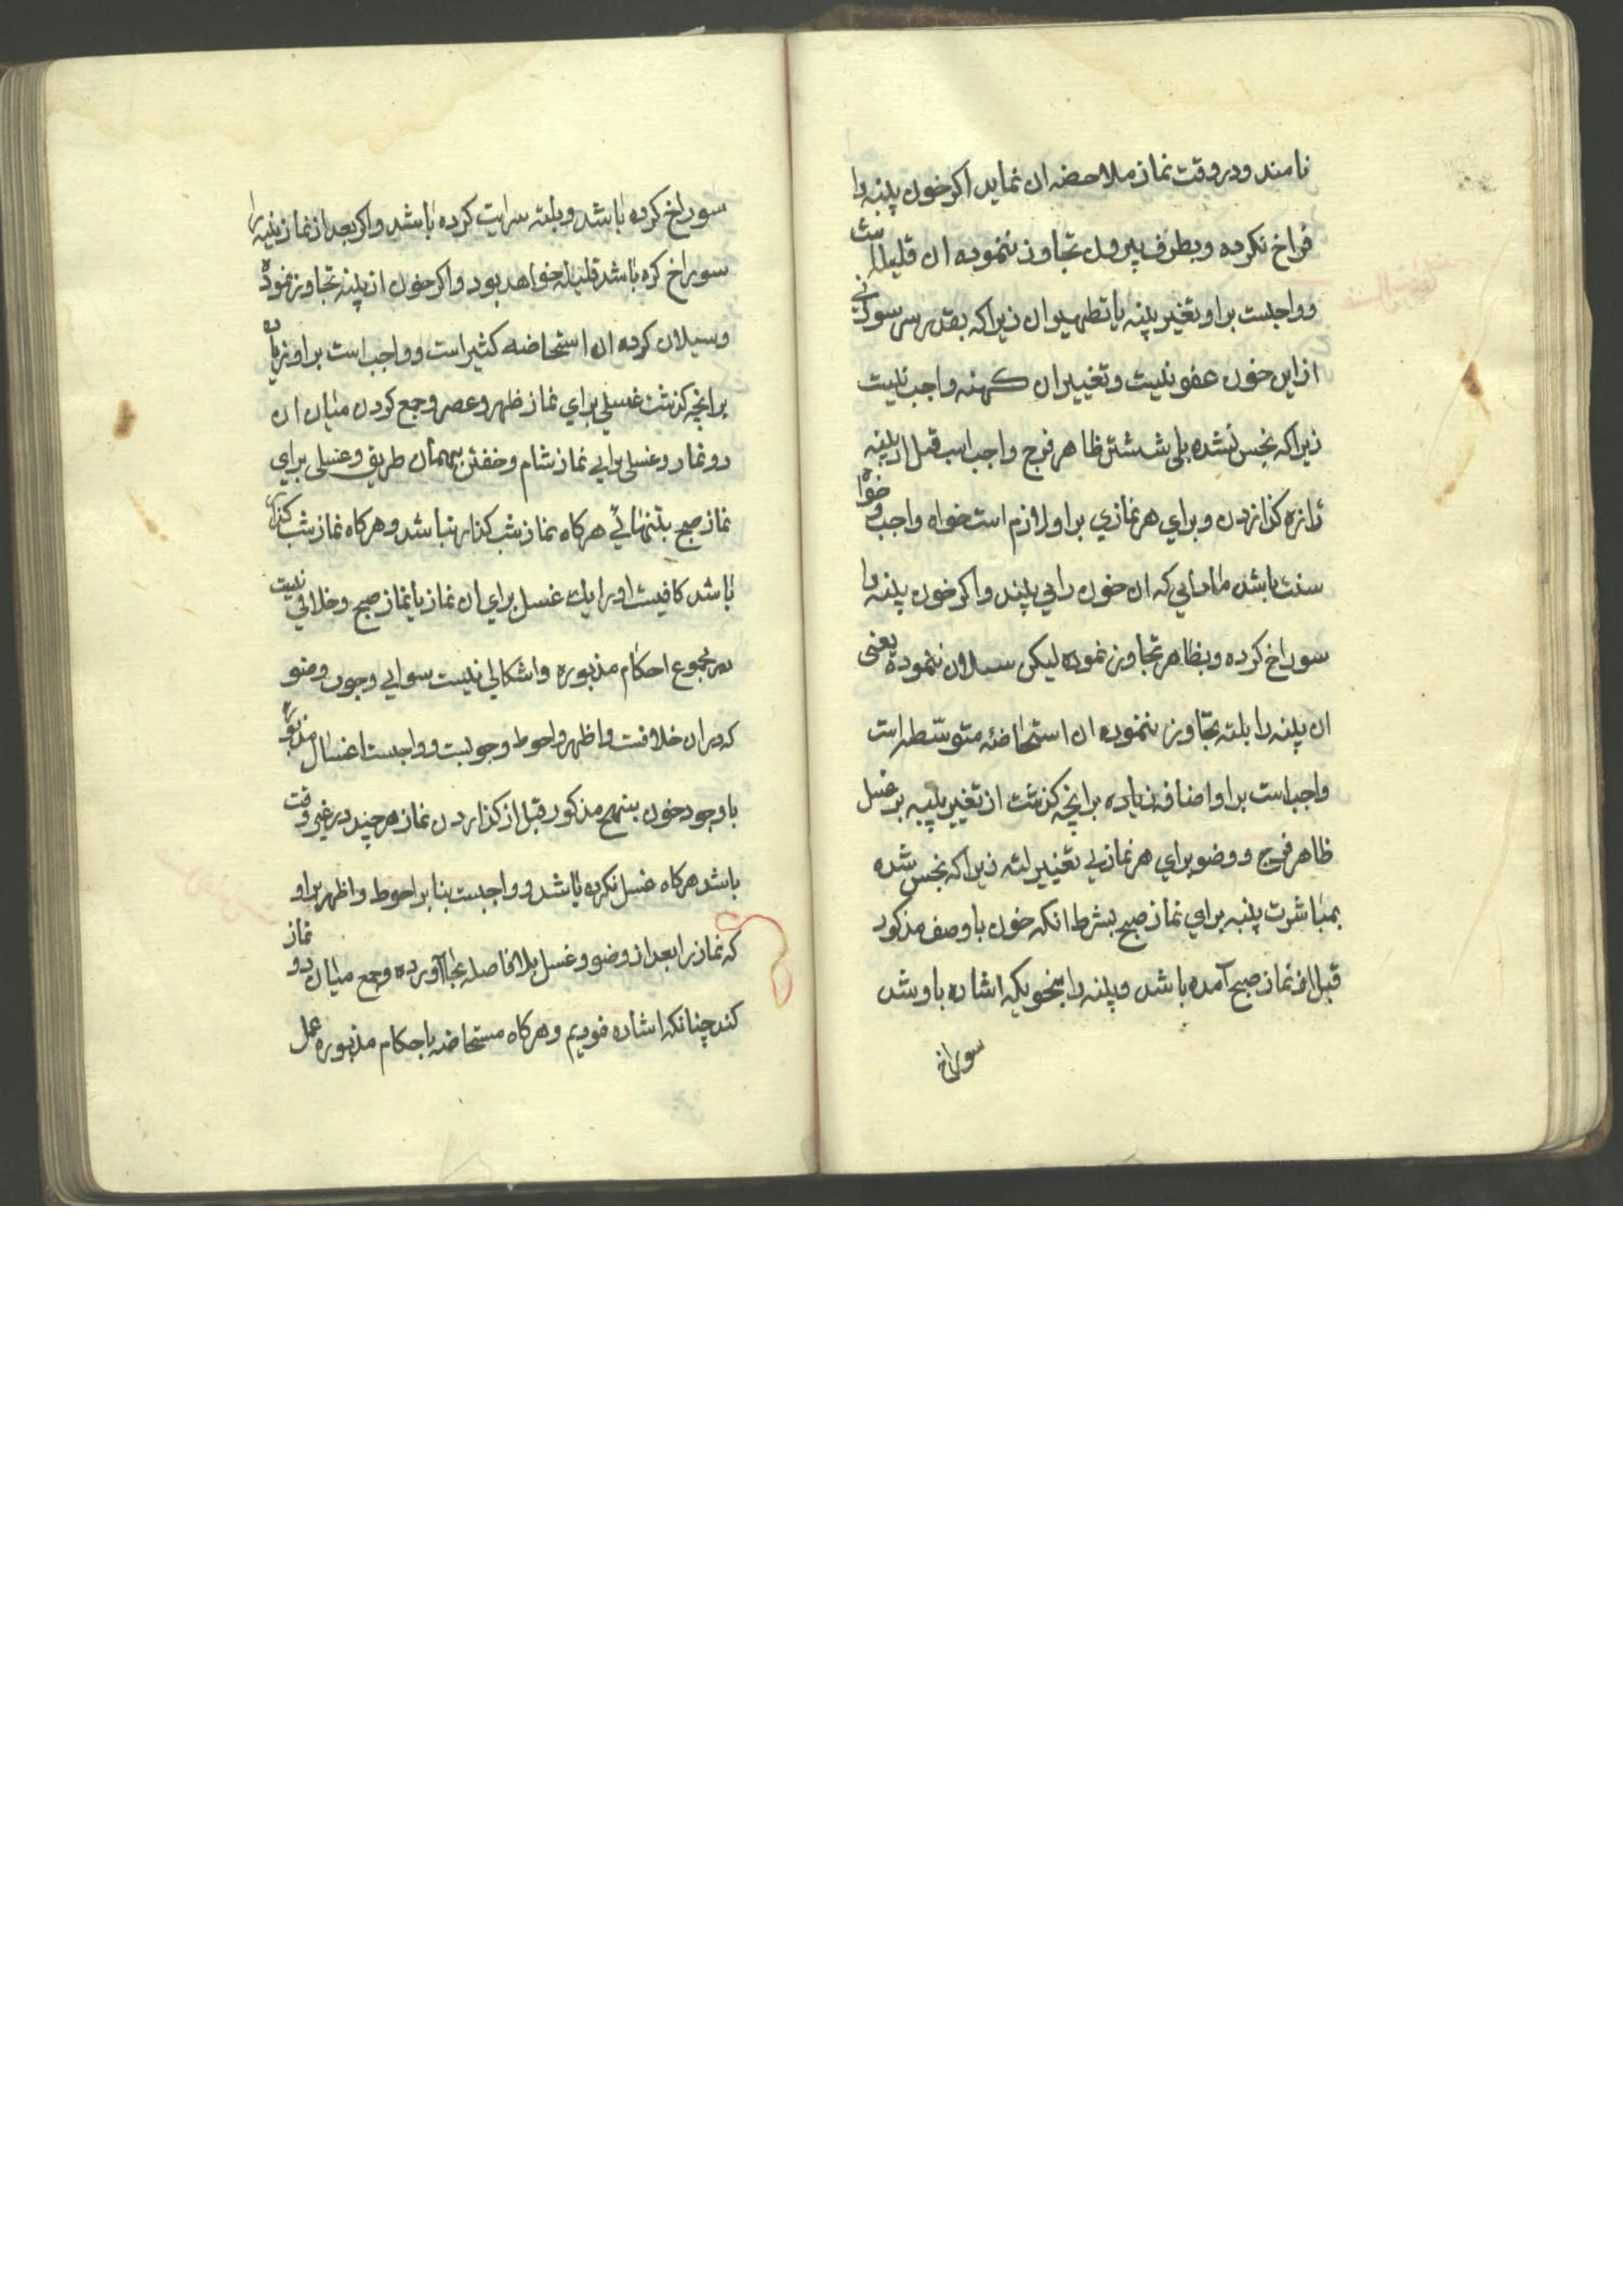 نامند ودر وقت نماز ملاحضه ان نماید اکر خون پنبه را
فراخ نکرده وبطرف بیرون تجاوز ننموده ان قلیله است
وواجبست بر او تغیر پنبه یا تطهیر ان زیرا که بقدر سر سوزنی
از این خون عفو نیست وتغییر ان کهنه واجب نیست
زیرا که نجس نشده بلی شستن ظاهر فرج واجب است قبل از پنبه
تازه کذاردن وبرای هر نمازی بر او لازم است خواه واجب وخواه
سنت باشد مادامی که ان خون را می بیند واکر خون پنبه را
سوراخ کرده وبظاهر تجاوز نموده لیکن سیلان ننموده یعنی
ان پنبه را بلته تجاوز ننموده ان استحاضه متوسطه است
واجب است بر او اضافه زیاده بر انچه کذشت از تغییر پنبه بر غسل
ظاهر فرج ووضو برای هر نمازی تغییر لته زیرا که نجس شده
بمباشرت پنبه برای نماز صبح بشرط انکه خون با وصف مذکور
قبل از نماز صبح آمده باشد وپنبه را بنحویکه اشاره باو شد
سوراخ
سوراخ کرده باشد وبلته سرایت کرده باشد واکر بعد از نماز پنبه را
سوراخ کره باشد قلیله خواهد بود واکر خون از پنبه تجاوز نموده
وسیلان کرده ان استحاضه کثیر است وواجب است بر او زیاده
بر انچه کذشت غسلی برای نماز ظهر وعصر وجمع کردن میان ان
دو نماز وغسلی برای نماز شام وخفتن بهمان طریق وغسلی برای
نماز صبح بتنهائی هرکاه نماز شب کذار نباشد وهرکاه نماز شب کذار
باشد کافیست او را یك غسل برای ان نماز با نماز صبح وخلافی نیست
در مجموع احکام مذبوره واشکالی نیست سوای وجوب وضو
که در ان خلافست واظهر واحوط وجوبست وواجبست اغسال مذبوره
با وجود خون بنهج مذکور قبل از کذاردن نماز هرچند در غیر وقت
باشد هرکاه غسل نکرده باشد وواجبست بنا بر احوط واظهر بر او
که نماز را بعد از وضو وغسل بلافاصله بجا آورده وجمع میان دو نماز
کند چنانکه اشاره نمودیم وهرکاه مستحاضه باحکام مذبوره عمل